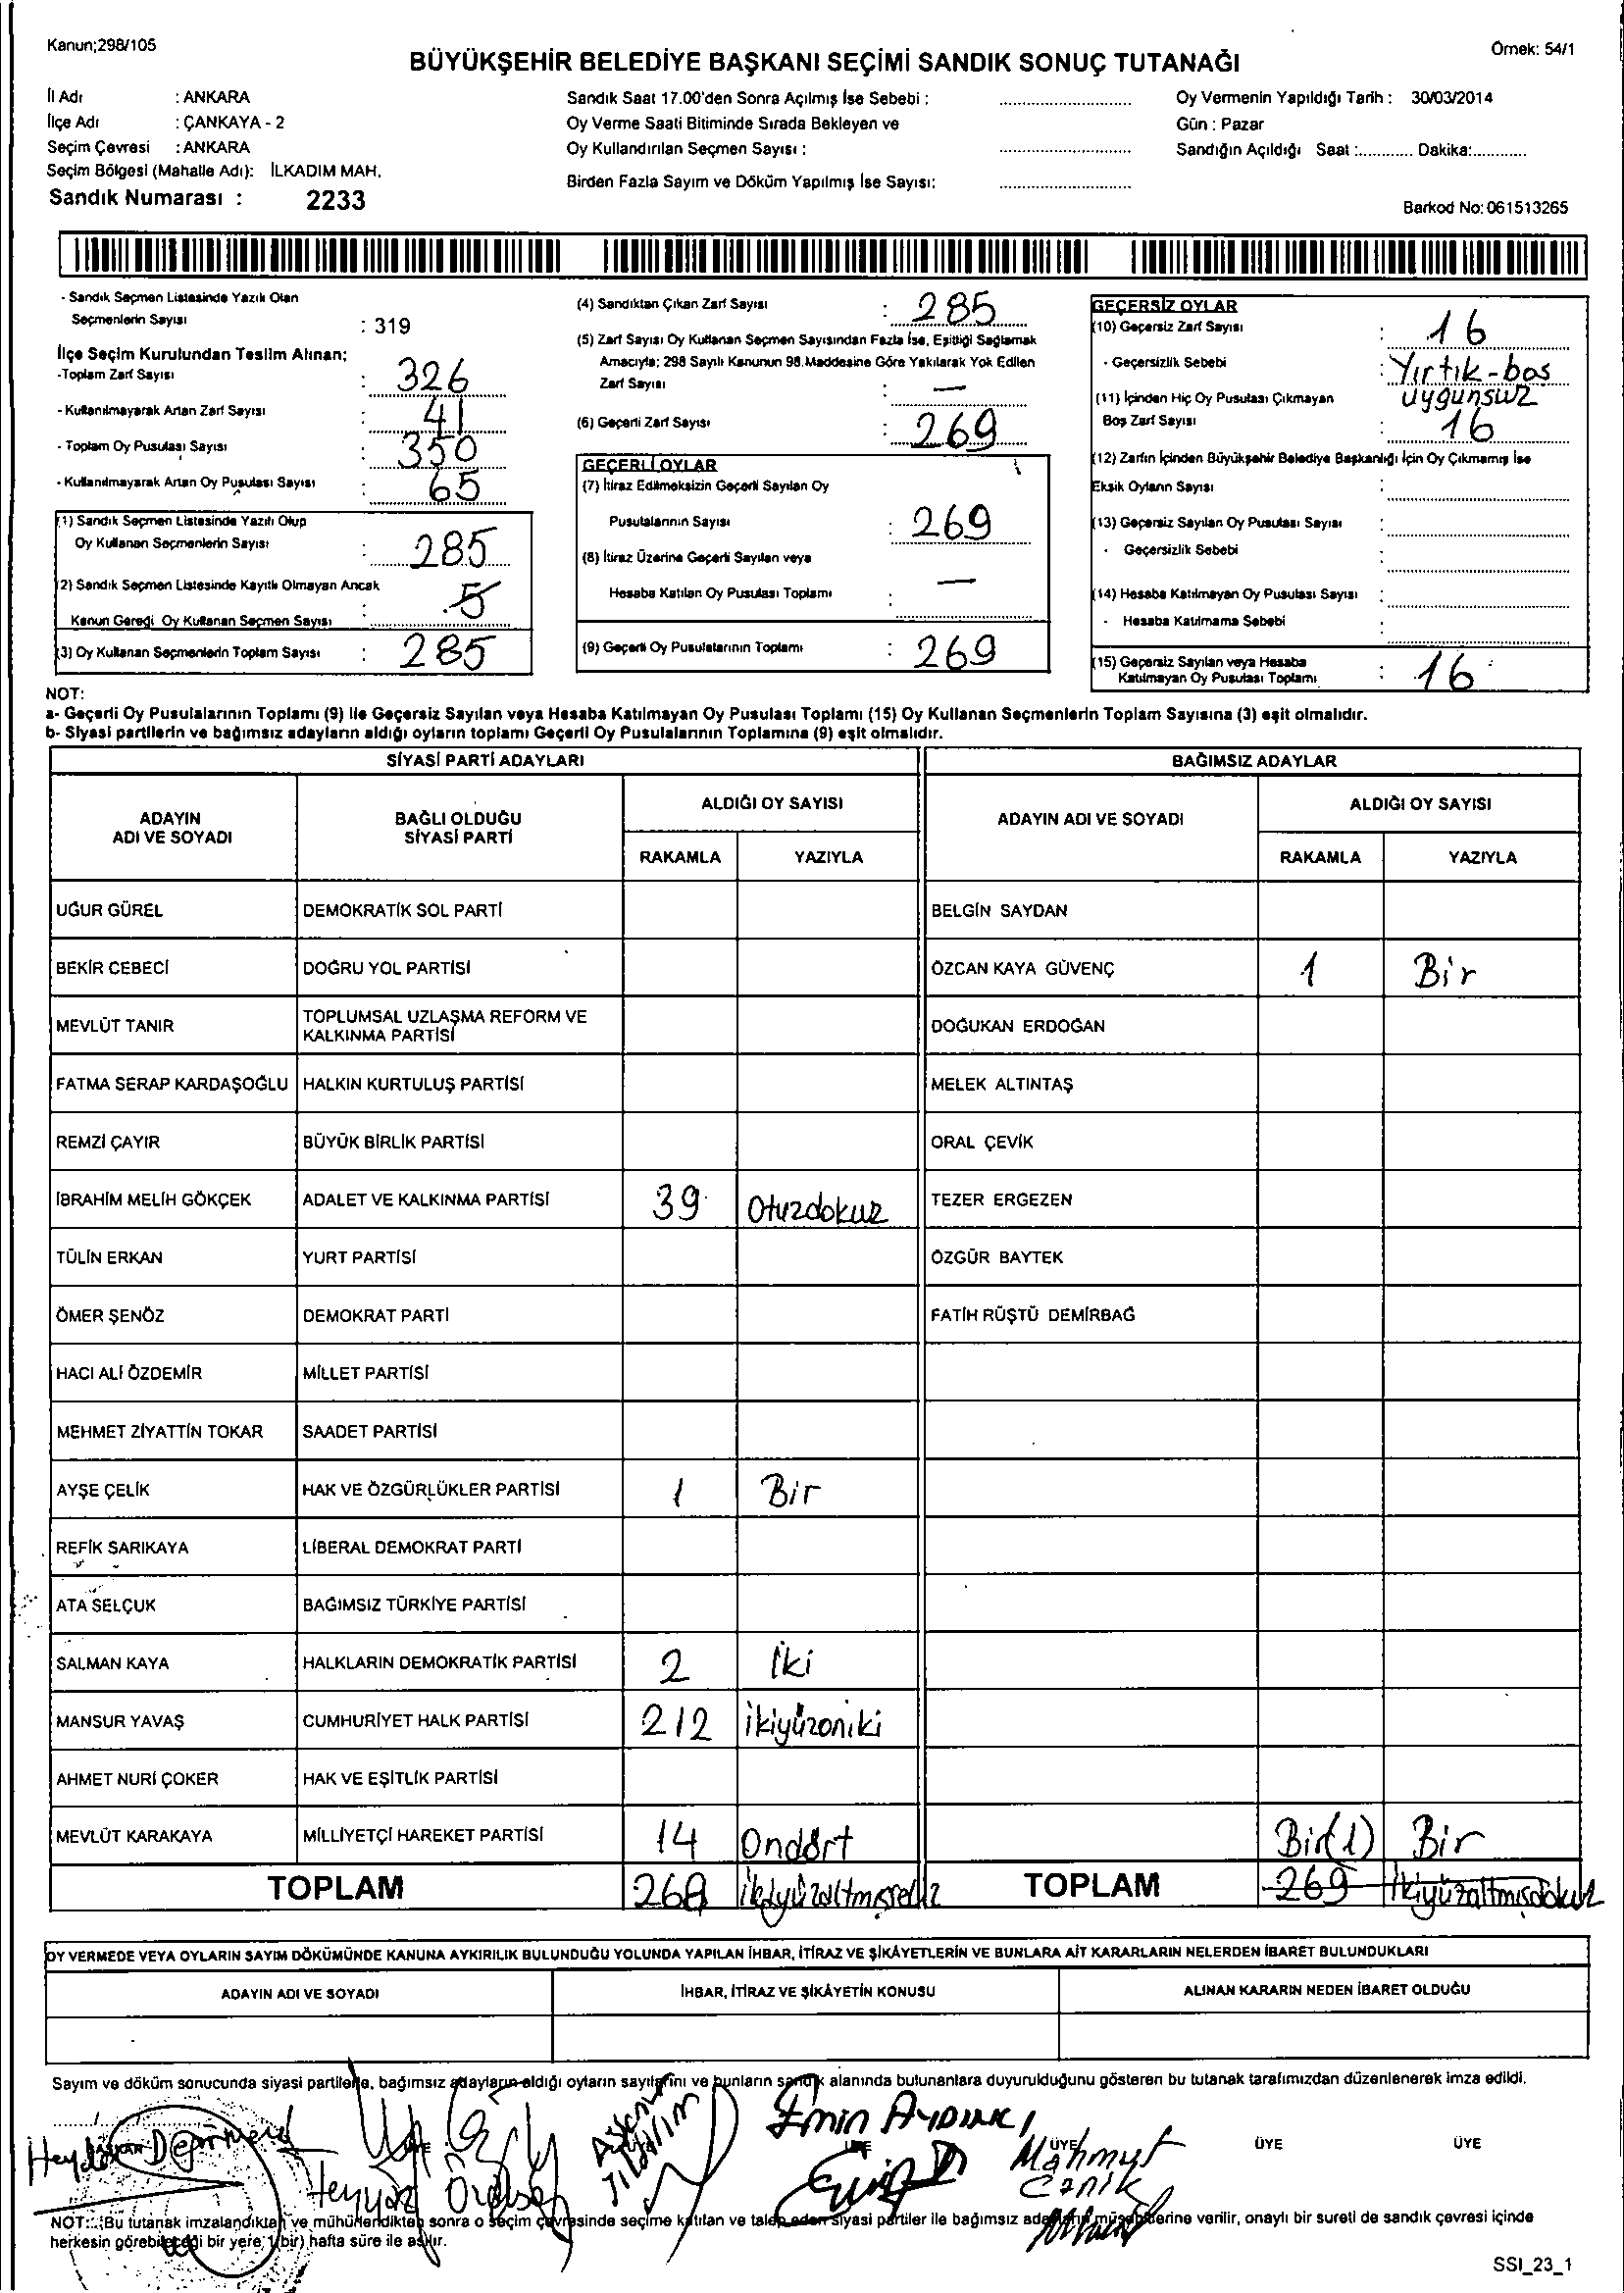 Kanun;298/105
Örnek: 54/1
BÜYÜKŞEHİR BELEDİYE BAŞKANI SEÇİMİ SANDIK SONUÇ TUTANAĞI
İl Adı : ANKARA
İlçe Adı : ÇANKAYA - 2
Seçim Çevresi : ANKARA
Seçim Bölgesi (Mahalle Adı): İLKADIM MAH.
Sandık Numarası : 2233
Sandık Saat 17.00'den Sonra Açılmış İse Sebebi :
Oy Verme Saati Bitiminde Sırada Bekleyen ve
Oy Kullandırılan Seçmen Sayısı :
Birden Fazla Sayım ve Döküm Yapılmış İse Sayısı:
Oy Vermenin Yapıldığı Tarih : 30/03/2014
Gün : Pazar
Sandığın Açıldığı Saat :............ Dakika:............
Barkod No: 061513265
- Sandık Seçmen Listesinde Yazılı Olan
Seçmenlerin Sayısı : 319
İlçe Seçim Kurulundan Teslim Alınan;
-Toplam Zarf Sayısı : 326
- Kullanılmayarak Artan Zarf Sayısı : 41
- Toplam Oy Pusulası Sayısı : 350
- Kullanılmayarak Artan Oy Pusulası Sayısı : 65
(1) Sandık Seçmen Listesinde Yazılı Olup
Oy Kullanan Seçmenlerin Sayısı : 285
(2) Sandık Seçmen Listesinde Kayıtlı Olmayan Ancak
Kanun Gereği Oy Kullanan Seçmen Sayısı :
(3) Oy Kullanan Seçmenlerin Toplam Sayısı : 285
(4) Sandıktan Çıkan Zarf Sayısı : 285
(5) Zarf Sayısı Oy Kullanan Seçmen Sayısından Fazla İse, Eşitliği Sağlamak
Amacıyla; 298 Sayılı Kanunun 98.Maddesine Göre Yakılarak Yok Edilen
Zarf Sayısı : —
(6) Geçerli Zarf Sayısı : 269
GEÇERLİ OYLAR
(7) İtiraz Edilmeksizin Geçerli Sayılan Oy
Pusulalarının Sayısı : 269
(8) İtiraz Üzerine Geçerli Sayılan veya
Hesaba Katılan Oy Pusulası Toplamı : —
(9) Geçerli Oy Pusulalarının Toplamı : 269
GEÇERSİZ OYLAR
(10) Geçersiz Zarf Sayısı : 16
- Geçersizlik Sebebi : Yırtık-bos
uygunsuz
(11) İçinden Hiç Oy Pusulası Çıkmayan
Boş Zarf Sayısı : 16
(12) Zarfın İçinden Büyükşehir Belediye Başkanlığı İçin Oy Çıkmamış İse
Eksik Oyların Sayısı :
(13) Geçersiz Sayılan Oy Pusulası Sayısı :
- Geçersizlik Sebebi :
(14) Hesaba Katılmayan Oy Pusulası Sayısı :
- Hesaba Katılmama Sebebi :
(15) Geçersiz Sayılan veya Hesaba
Katılmayan Oy Pusulası Toplamı : 16
NOT:
a- Geçerli Oy Pusulalarının Toplamı (9) ile Geçersiz Sayılan veya Hesaba Katılmayan Oy Pusulası Toplamı (15) Oy Kullanan Seçmenlerin Toplam Sayısına (3) eşit olmalıdır.
b- Siyasi partilerin ve bağımsız adayların aldığı oyların toplamı Geçerli Oy Pusulalarının Toplamına (9) eşit olmalıdır.
SİYASİ PARTİ ADAYLARI
BAĞIMSIZ ADAYLAR
ADAYIN ADI VE SOYADI
BAĞLI OLDUĞU SİYASİ PARTİ
ALDIĞI OY SAYISI
RAKAMLA YAZIYLA
ADAYIN ADI VE SOYADI
ALDIĞI OY SAYISI
RAKAMLA YAZIYLA
UĞUR GÜREL DEMOKRATİK SOL PARTİ BELGİN SAYDAN
BEKİR CEBECİ DOĞRU YOL PARTİSİ ÖZCAN KAYA GÜVENÇ 1 Bir
MEVLÜT TANIR TOPLUMSAL UZLAŞMA REFORM VE KALKINMA PARTİSİ DOĞUKAN ERDOĞAN
FATMA SERAP KARDAŞOĞLU HALKIN KURTULUŞ PARTİSİ MELEK ALTINTAŞ
REMZİ ÇAYIR BÜYÜK BİRLİK PARTİSİ ORAL ÇEVİK
İBRAHİM MELİH GÖKÇEK ADALET VE KALKINMA PARTİSİ 39 Otuzdokuz TEZER ERGEZEN
TÜLİN ERKAN YURT PARTİSİ ÖZGÜR BAYTEK
ÖMER ŞENÖZ DEMOKRAT PARTİ FATİH RÜŞTÜ DEMİRBAĞ
HACI ALİ ÖZDEMİR MİLLET PARTİSİ
MEHMET ZİYATTİN TOKAR SAADET PARTİSİ
AYŞE ÇELİK HAK VE ÖZGÜRLÜKLER PARTİSİ 1 Bir
REFİK SARIKAYA LİBERAL DEMOKRAT PARTİ
ATA SELÇUK BAĞIMSIZ TÜRKİYE PARTİSİ
SALMAN KAYA HALKLARIN DEMOKRATİK PARTİSİ 2 İki
MANSUR YAVAŞ CUMHURİYET HALK PARTİSİ 212 ikiyüzoniki
AHMET NURİ ÇOKER HAK VE EŞİTLİK PARTİSİ
MEVLÜT KARAKAYA MİLLİYETÇİ HAREKET PARTİSİ 14 Ondört Bir(1) Bir
TOPLAM 268 TOPLAM 269 İkiyüzaltmışdokuz
OY VERMEDE VEYA OYLARIN SAYIM DÖKÜMÜNDE KANUNA AYKIRILIK BULUNDUĞU YOLUNDA YAPILAN İHBAR, İTİRAZ VE ŞİKÂYETLERİN VE BUNLARA AİT KARARLARIN NELERDEN İBARET BULUNDUKLARI
ADAYIN ADI VE SOYADI İHBAR, İTİRAZ VE ŞİKÂYETİN KONUSU ALINAN KARARIN NEDEN İBARET OLDUĞU
Sayım ve döküm sonucunda siyasi partilerle, bağımsız adayların aldığı oyların sayılarını ve bunların sandık alanında bulunanlara duyurulduğunu gösteren bu tutanak tarafımızdan düzenlenerek imza edildi.
Emin
Mahmut
BAŞKAN ÜYE ÜYE ÜYE ÜYE ÜYE
NOT: Bu tutanak imzalandıktan ve mühürlendikten sonra o seçim çevresinde seçime katılan ve talep eden siyasi partiler ile bağımsız adayların müşahitlerine verilir, onaylı bir sureti de sandık çevresi içinde
herkesin görebileceği bir yere, 1(bir) hafta süre ile asılır.
SSI_23_1